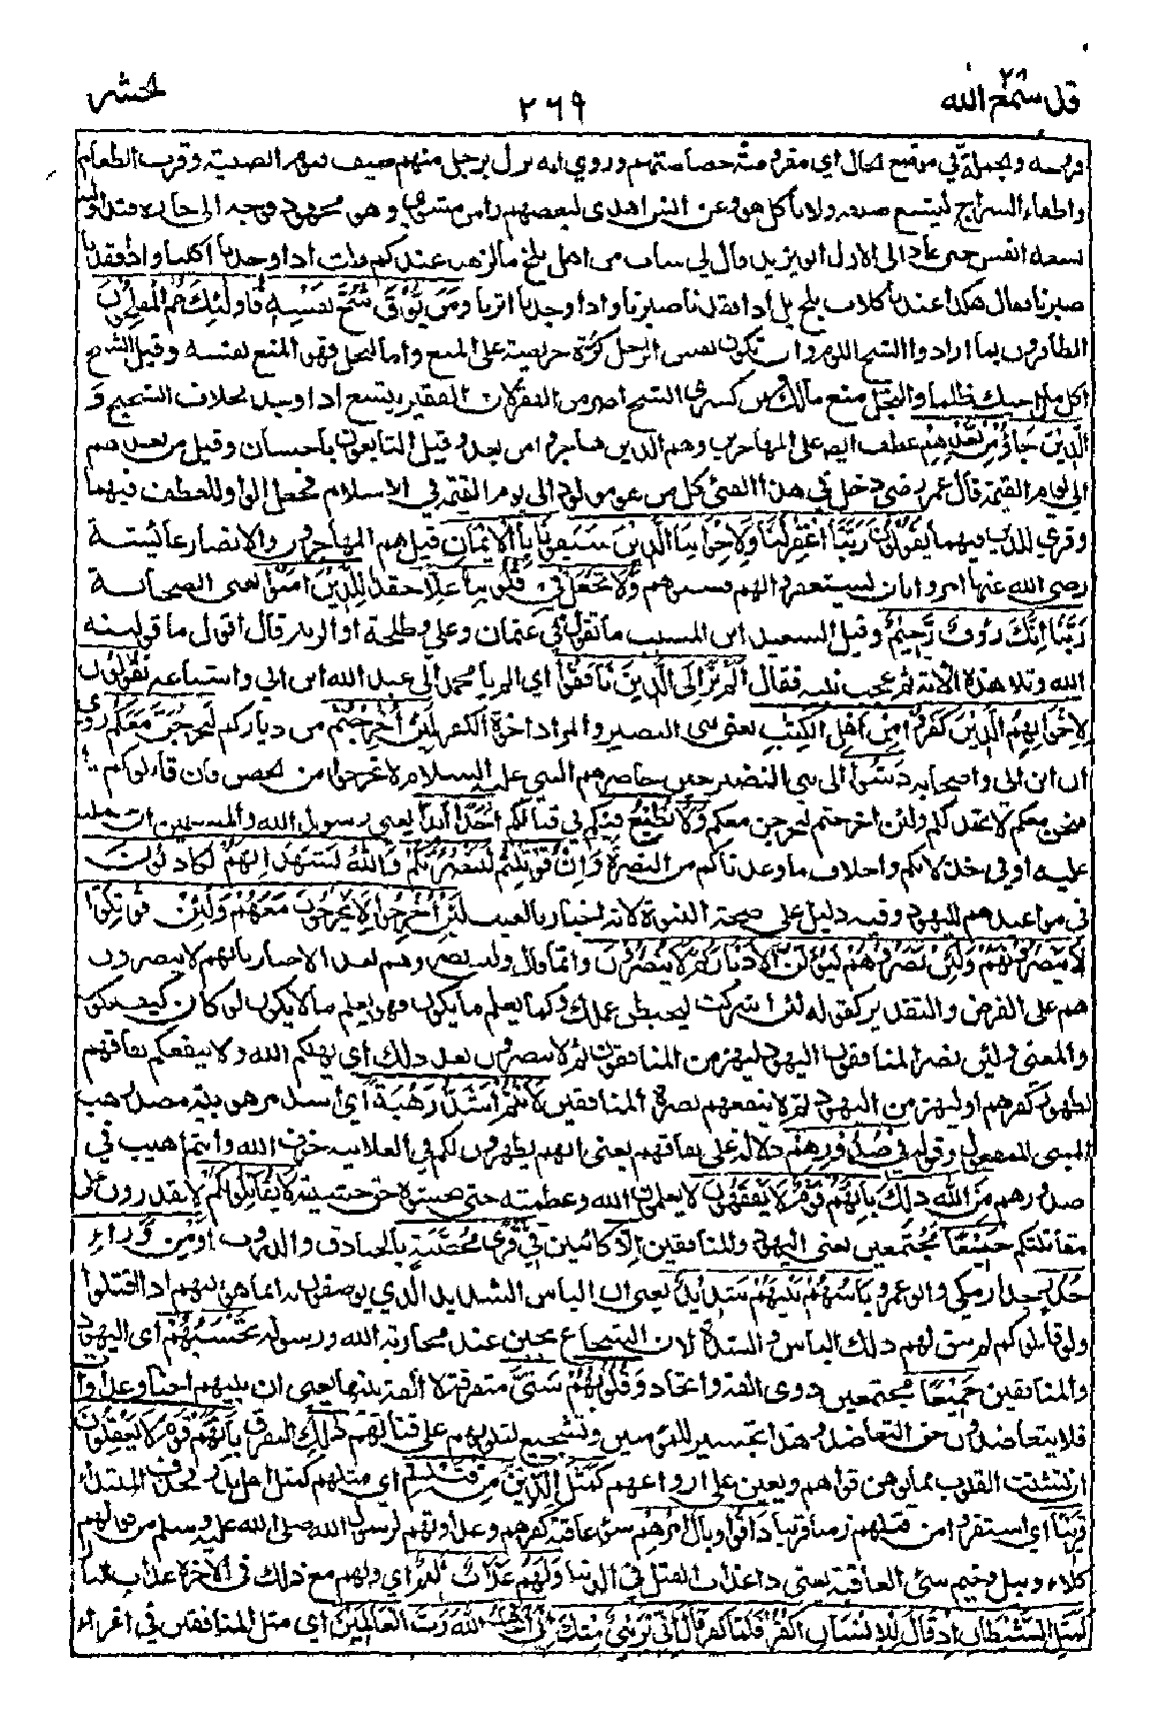 قد سمع الله ٢٨
٢٦٩
الحشر
فرجه والجملة في موضع الحال اي مفروضة خصاصتهم وروي انه نزل برجل منهم ضيف فنوم الصبية وقرب الطعام
واطفاء السراج ليشبع ضيفه ولا يأكل هو وعن انس اهدى لبعضهم راس مشوي وهو مجهود فوجه الى جاره فتداولته
تسعة انفس حتى عاد الى الاول ابو يزيد قال لي شاب من اهل بلخ ما الزهد عندكم قلت اذا وجدنا اكلنا واذا فقدنا
صبرنا فقال هكذا عندنا كلاب بلخ بل اذا فقدنا صبرنا واذا وجدنا اثرنا وَمَنْ يُّوْقَ شُحَّ نَفْسِهٖ فَاُولٰئِكَ هُمُ الْمُفْلِحُوْنَ
الظافرون بما ارادوا الشح اللوم وان تكون نفس الرجل كزة حريصة على المنع واما البخل فهو المنع نفسه وقيل الشح
اكل مال اخيك ظلما والبخل منع مالك وعن كسرى الشح اضر من الفقر لان الفقير يتسع اذا وجد بخلاف الشحيح وَ
الَّذِيْنَ جَاؤُ مِنْ بَعْدِهِمْ عطف ايضا على المهاجرين وهم الذين هاجروا من بعد وقيل التابعون باحسان وقيل من بعدهم
الى يوم القيمة قال عمر رضي دخل في هذا الفئ كل من هو مولود الى يوم القيمة في الاسلام فجعل الواو للعطف فيهما
وقرئ للذين فيهما يَقُوْلُوْنَ رَبَّنَا اغْفِرْ لَنَا وَلِاِخْوَانِنَا الَّذِيْنَ سَبَقُوْنَا بِالْاِيْمَانِ قيل هم المهاجرون والانصار عائشة
رضي الله عنها امروا بان يستغفروا لهم فسبوهم وَلَا تَجْعَلْ فِيْ قُلُوْبِنَا غِلًّا حقدا لِلَّذِيْنَ اٰمَنُوْا يعني الصحابة
رَبَّنَا اِنَّكَ رَؤُفٌ رَّحِيْمٌ وقيل لسعيد ابن المسيب ما تقول في عثمان وعلي وطلحة والزبير قال اقول ما قولنيه
الله وتلا هذه الاية ثم عجب نبيه فقال اَلَمْ تَرَ اِلَى الَّذِيْنَ نَافَقُوْا اي الم تر يا محمد الى عبد الله ابن ابي واشياعه يَقُوْلُوْنَ
لِاِخْوَانِهِمُ الَّذِيْنَ كَفَرُوْا مِنْ اَهْلِ الْكِتٰبِ يعني بني النضير والمراد اخوة الكفر لَئِنْ اُخْرِجْتُمْ من دياركم لَنَخْرُجَنَّ مَعَكُمْ روي
ان ابن ابي واصحابه دسوا الى بني النضير حين حاصرهم النبي عليه السلام لا تخرجوا من الحصن فان قاتلوكم
فنحن معكم لا نخذلكم ولئن اخرجتم لنخرجن معكم وَلَا نُطِيْعُ فِيْكُمْ في قتالكم اَحَدًا اَبَدًا يعني رسول الله والمسلمين ان حملنا
عليه او في خذلانكم واخلاف ما وعدناكم من النصرة وَاِنْ قُوْتِلْتُمْ لَنَنْصُرَنَّكُمْ وَاللّٰهُ يَشْهَدُ اِنَّهُمْ لَكَاذِبُوْنَ
في مواعيدهم لليهود وفيه دليل على صحة النبوة لانه اخبار بالغيب لَئِنْ اُخْرِجُوْا لَا يَخْرُجُوْنَ مَعَهُمْ وَلَئِنْ قُوْتِلُوْا
لَا يَنْصُرُوْنَهُمْ وَلَئِنْ نَصَرُوْهُمْ لَيُوَلُّنَّ الْاَدْبَارَ ثُمَّ لَا يُنْصَرُوْنَ وانما قال ولئن نصروهم بعد الاخبار بانهم لا ينصرون
هم على الفرض والتقدير كقوله لئن اشركت ليحبطن عملك وكما يعلم ما يكون فهو يعلم ما لا يكون لو كان كيف يكون
والمعنى ولئن نصر المنافقون اليهود لينهزمن المنافقون ثم لا ينصرون بعد ذلك اي يهلكهم الله ولا ينفعهم نفاقهم
لظهور كفرهم او لينهزمن اليهود ثم لا ينفعهم نصرة المنافقين لَاَنْتُمْ اَشَدُّ رَهْبَةً اي اشد مرهوبية مصدر رهب
المبني للمفعول وقوله فِيْ صُدُوْرِهِمْ دلالة على نفاقهم يعني انهم يظهرون لكم في العلانية خوف الله وانتم اهيب في
صدورهم مِنَ اللّٰهِ ذٰلِكَ بِاَنَّهُمْ قَوْمٌ لَا يَفْقَهُوْنَ لا يعلمون الله وعظمته حتى يخشوه حق خشيته لَا يُقَاتِلُوْنَكُمْ لا يقدرون على
مقاتلتكم جَمِيْعًا مجتمعين يعني اليهود والمنافقين اِلَّا كائنين فِيْ قُرًى مُحَصَّنَةٍ بالخنادق والدروب اَوْ مِنْ وَّرَاءِ
جُدُرٍ جدار مكي وابو عمرو بَاْسُهُمْ بَيْنَهُمْ شَدِيْدٌ يعني ان الباس الشديد الذي يوصفون به انما هو بينهم اذا اقتتلوا
ولو قاتلوكم لم يبق لهم ذلك الباس والشدة لان الشجاع يجبن عند محاربة الله ورسوله تَحْسَبُهُمْ اي اليهود
والمنافقين جَمِيْعًا مجتمعين ذوي الفة واتحاد وَقُلُوْبُهُمْ شَتّٰى متفرقة لا الفة بينها يعني ان بينهم احنا وعداوات
فلا يتعاضدون حق التعاضد وهذا تجسير للمؤمنين وتشجيع لقلوبهم على قتالهم ذٰلِكَ التفرق بِاَنَّهُمْ قَوْمٌ لَا يَعْقِلُوْنَ
ان تشتت القلوب مما يوهن قواهم ويعين على ارواحهم كَمَثَلِ الَّذِيْنَ مِنْ قَبْلِهِمْ اي مثلهم كمثل اهل بدر فحذف المبتدأ
قَرِيْبًا اي استقروا من قبلهم زمنا قريبا ذَاقُوْا وَبَالَ اَمْرِهِمْ سوء عاقبة كفرهم وعداوتهم لرسول الله صلى الله عليه وسلم من قولهم
كلاء وبيل وخيم سئ العاقبة يعني ذاقوا عذاب القتل في الدنيا وَلَهُمْ عَذَابٌ اَلِيْمٌ اي ولهم مع ذلك في الاخرة عذاب النار
كَمَثَلِ الشَّيْطَانِ اِذْ قَالَ لِلْاِنْسَانِ اكْفُرْ فَلَمَّا كَفَرَ قَالَ اِنِّيْ بَرِئٌ مِّنْكَ اِنِّيْ اَخَافُ اللّٰهَ رَبَّ الْعَالَمِيْنَ اي مثل المنافقين في اغراء